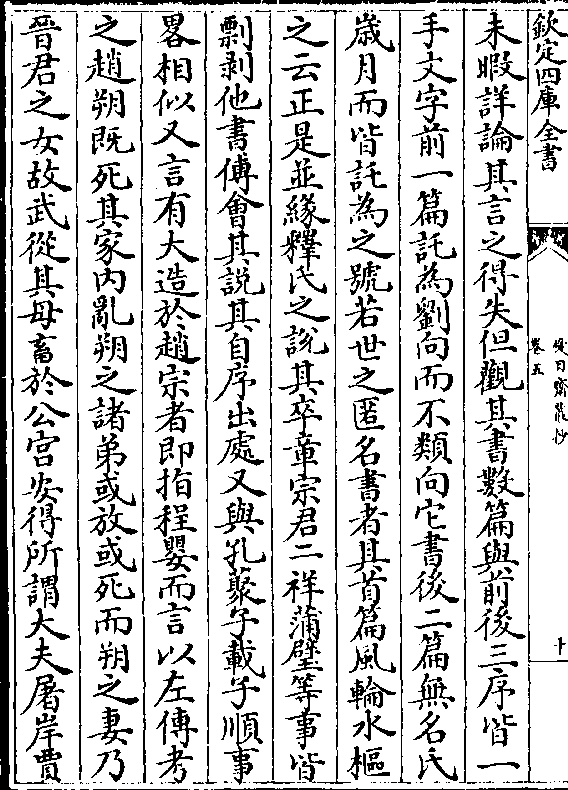 欽定四庫全書
愛日齋叢抄
卷五
十
未暇詳論其言之得失但觀其書數篇與前後三序皆一
手文字前一篇託為劉向而不類向它書後二篇無名氏
歲月而皆託為之號若世之匿名書者其首篇風輪水樞
之云正是並緣釋氏之說其卒章宗君二祥蒲璧等事皆
剽剥他書傅㑹其說其自序出處又與孔藂子載子順事
畧相似又言有大造於趙宗者即指程嬰而言以左傳考
之趙朔既死其家内亂朔之諸弟或放或死而朔之妻乃
晉君之女故武從其母畜於公宫安得所謂大夫屠岸賈